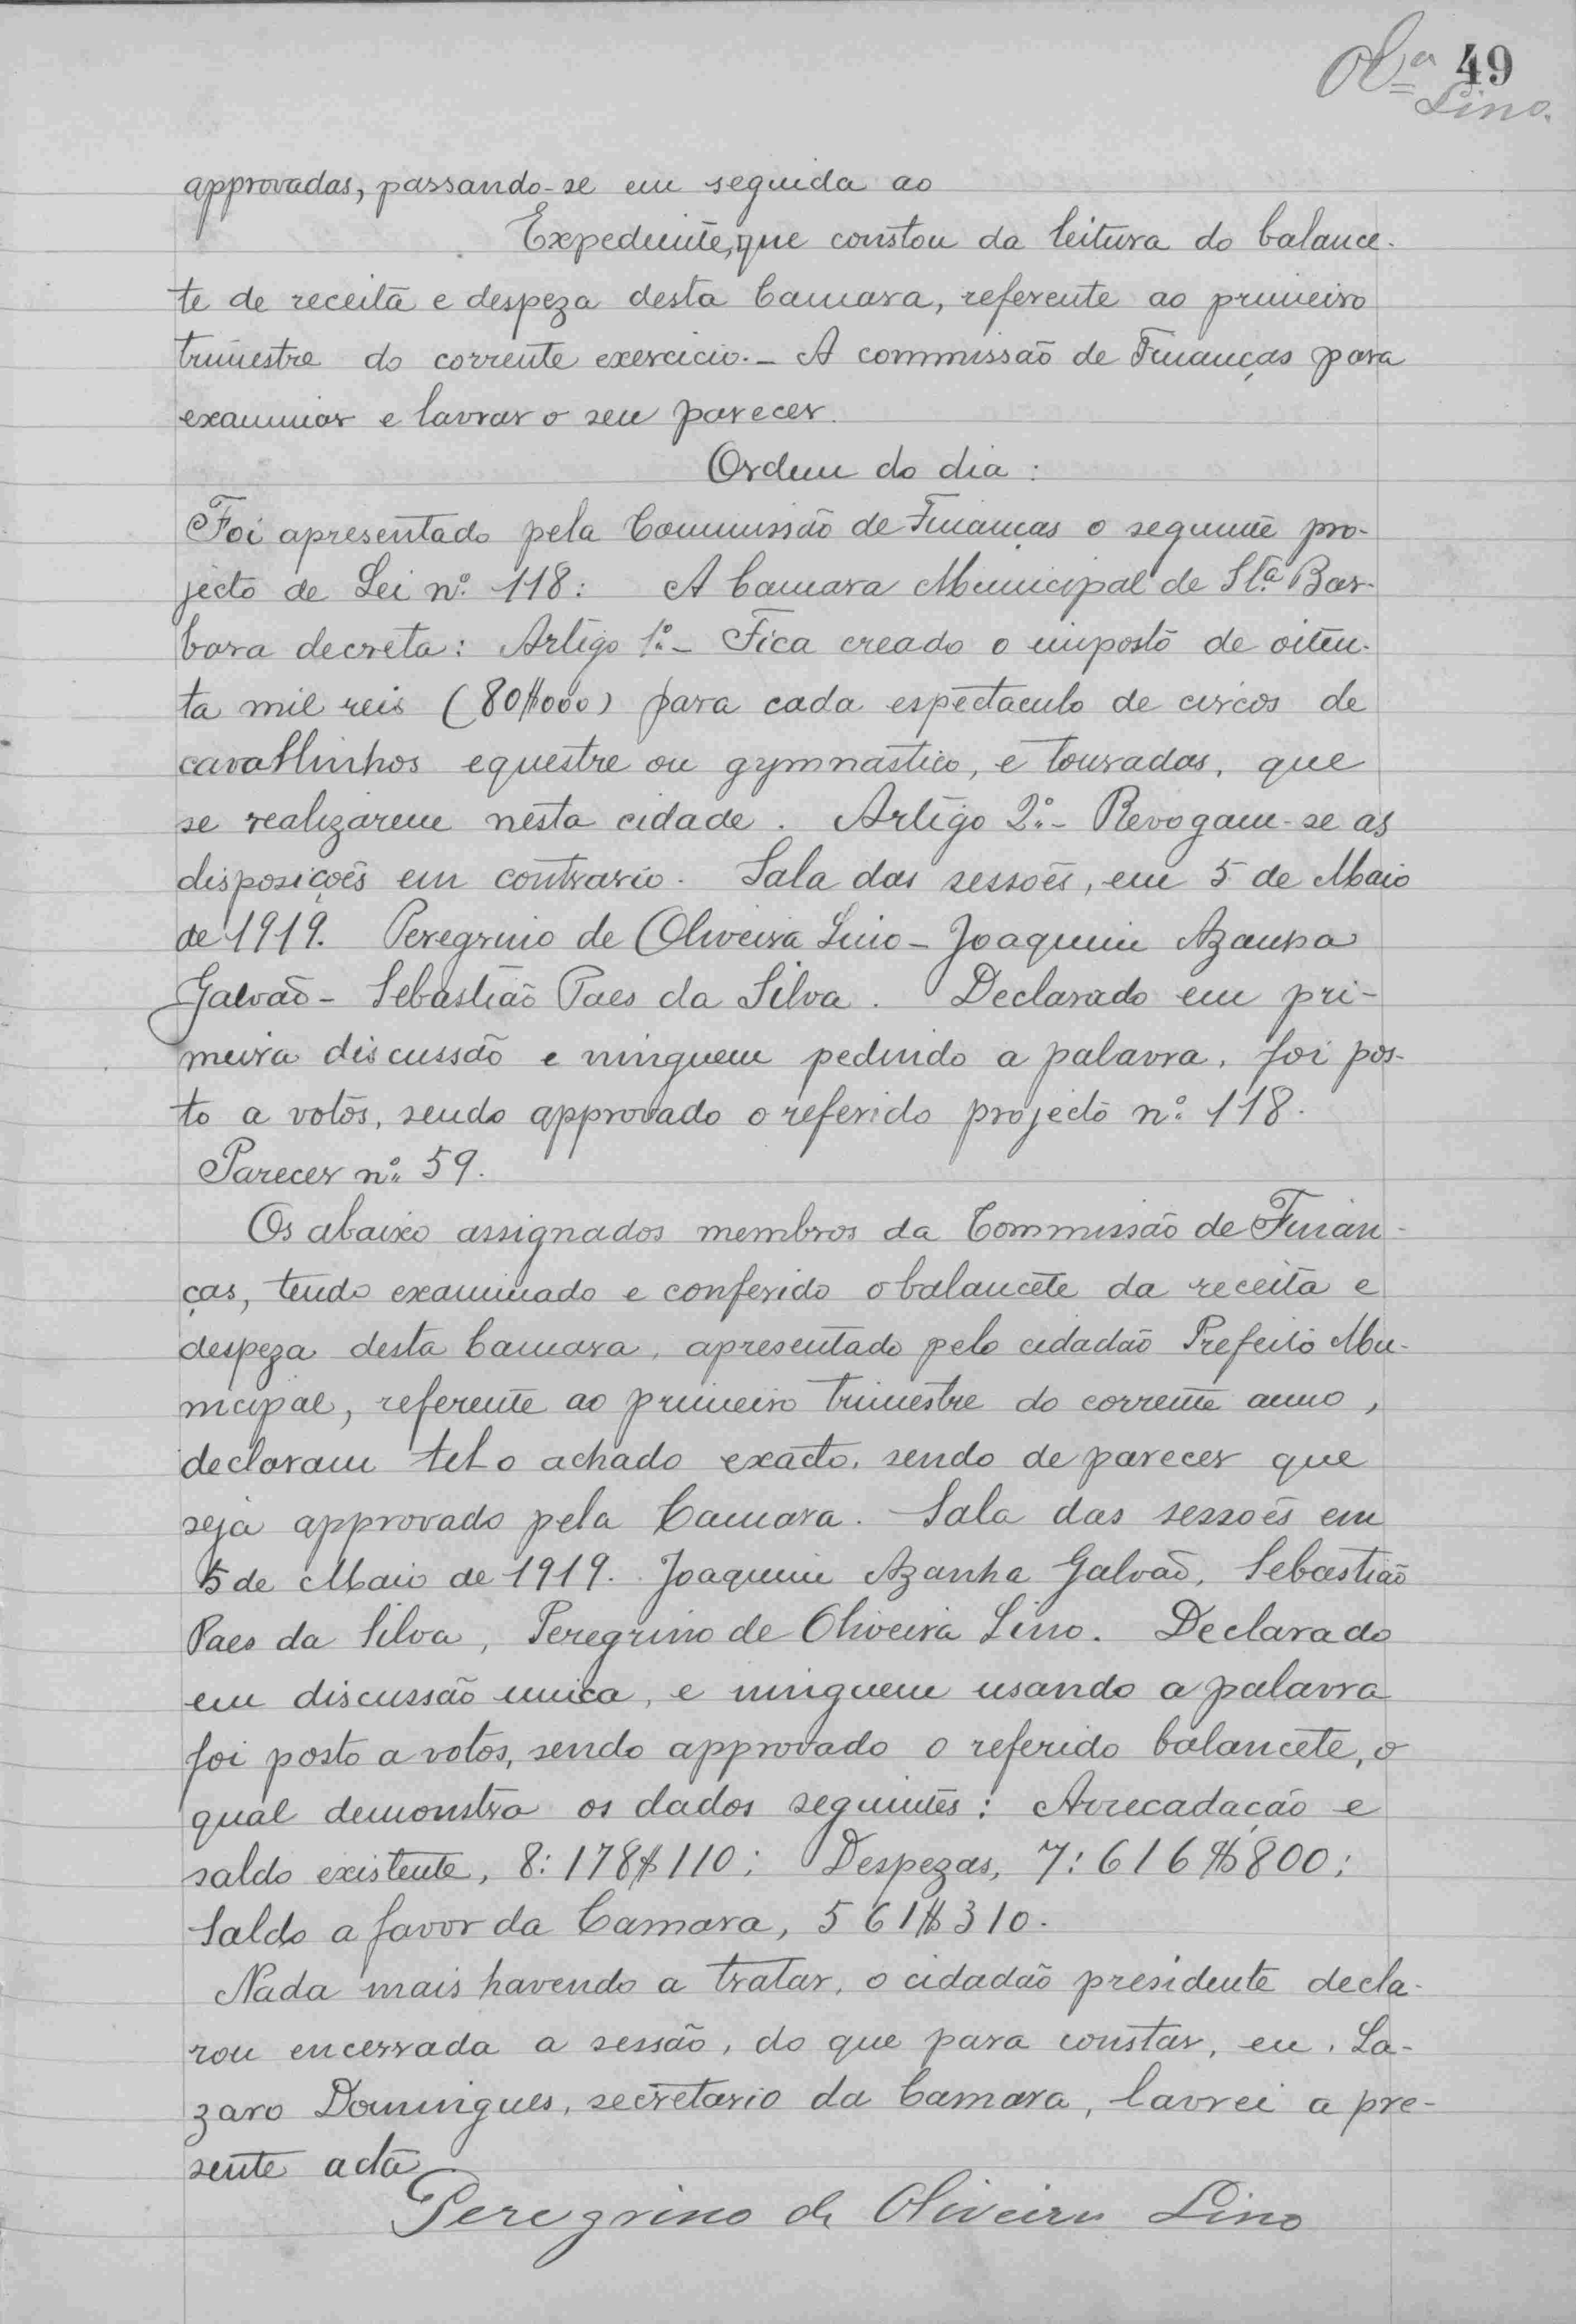 49
Olra
Lino.
approvadas, passando-se em seguida ao
Expediente, que constou da leitura do balance-
te de receita e despeza desta Camara, referente ao primeiro
trimestre do corrente exercicio. - A commissão de Finanças para
examinar e lavrar o seu parecer.
Ordem do dia:
Foi apresentado pela Commissão de Finanças o seguinte pro-
jecto de Lei nº 118: A Camara Municipal de Sta. Bar-
bara decreta: Artigo 1º - Fica creado o imposto de oiten-
ta mil reis (80$000) para cada espectaculo de circos de
cavallinhos equestre ou gymnastico, e touradas, que
se realizarem nesta cidade. Artigo 2º - Revogam-se as
disposições em contrario. Sala das sessões, em 5 de Maio
de 1919. Peregrino de Oliveira Lino - Joaquim Azanha
Galvão - Sebastião Paes da Silva. Declarado em pri-
meira discussão e ninguem pedindo a palavra, foi pos-
to a votos, sendo approvado o referido projecto nº 118.
Parecer nº 59.
Os abaixo assignados membros da Commissão de Finan-
ças, tendo examinado e conferido o balancete da receita e
despeza desta Camara, apresentado pelo cidadão Prefeito Mu-
nicipal, referente ao primeiro trimestre do corrente anno,
declaram tel o achado exacto, sendo de parecer que
seja approvado pela Camara. Sala das sessões em
5 de Maio de 1919. Joaquim Azanha Galvão, Sebastião
Paes da Silva, Peregrino de Oliveira Lino. Declarado
em discussão unica, e ninguem usando a palavra
foi posto a votos, sendo approvado o referido balancete, o
qual demonstra os dados seguintes: Arrecadação e
saldo existente, 8:178$110; Despezas, 7:616$800;
Saldo a favor da Camara, 561$310.
Nada mais havendo a tratar, o cidadão presidente decla-
rou encerrada a sessão, do que para constar, eu, La-
zaro Domingues, secretario da Camara, lavrei a pre-
sente acta
Peregrino de Oliveira Lino